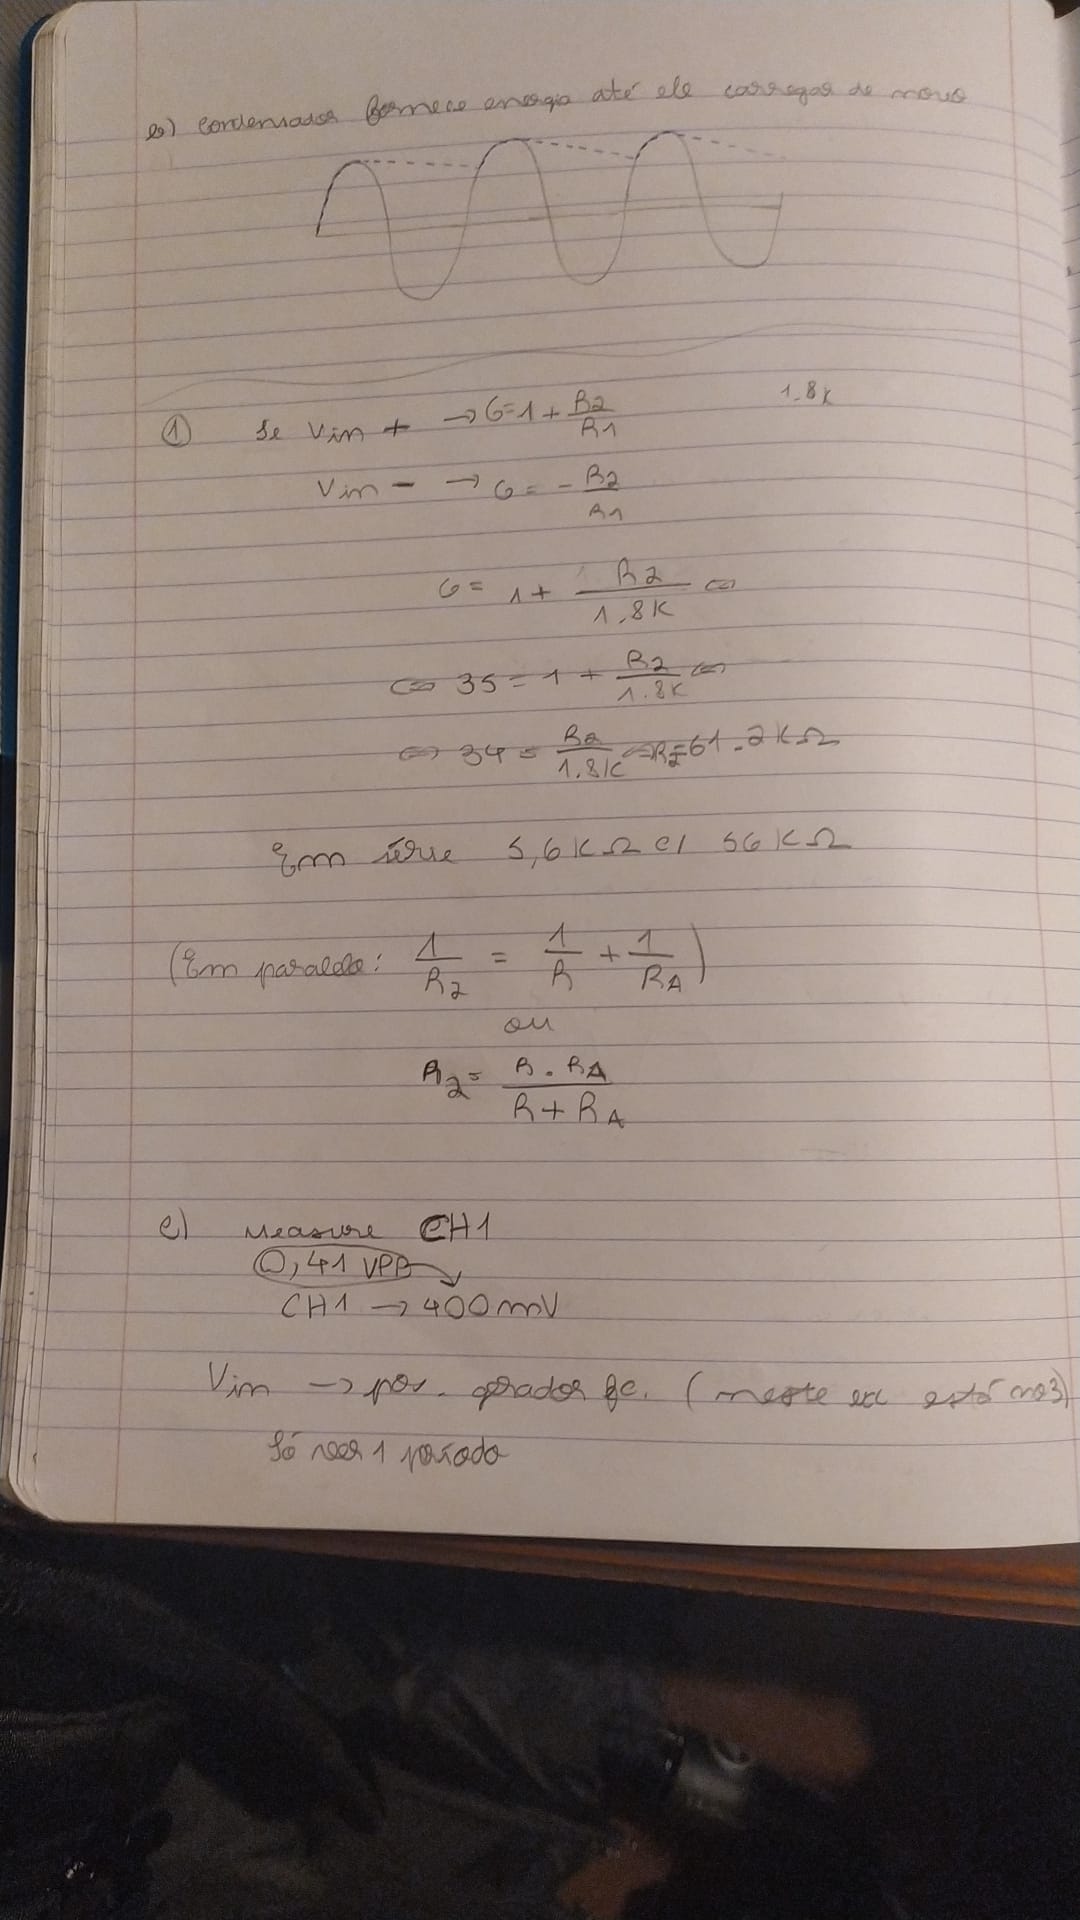 b) condensador fornece energia até ele carregar de novo
1.8k
① Se Vin + → G=1+ R2/R1
Vin - → G= - R2/R1
G= 1+ R2/1,8K ⇔
⇔ 35=1+ R2/1.8K ⇔
⇔ 34= R2/1.8K ⇔R2=61.2KΩ
Em série 5,6KΩ c/ 56KΩ
(Em paralelo: 1/R2 = 1/R + 1/RA)
ou
R2= R.RA/R+RA
c) Measure CH1
0,41 VPP
CH1 → 400mV
Vin → por. gerador (neste ex está no3)
Só ver 1 período